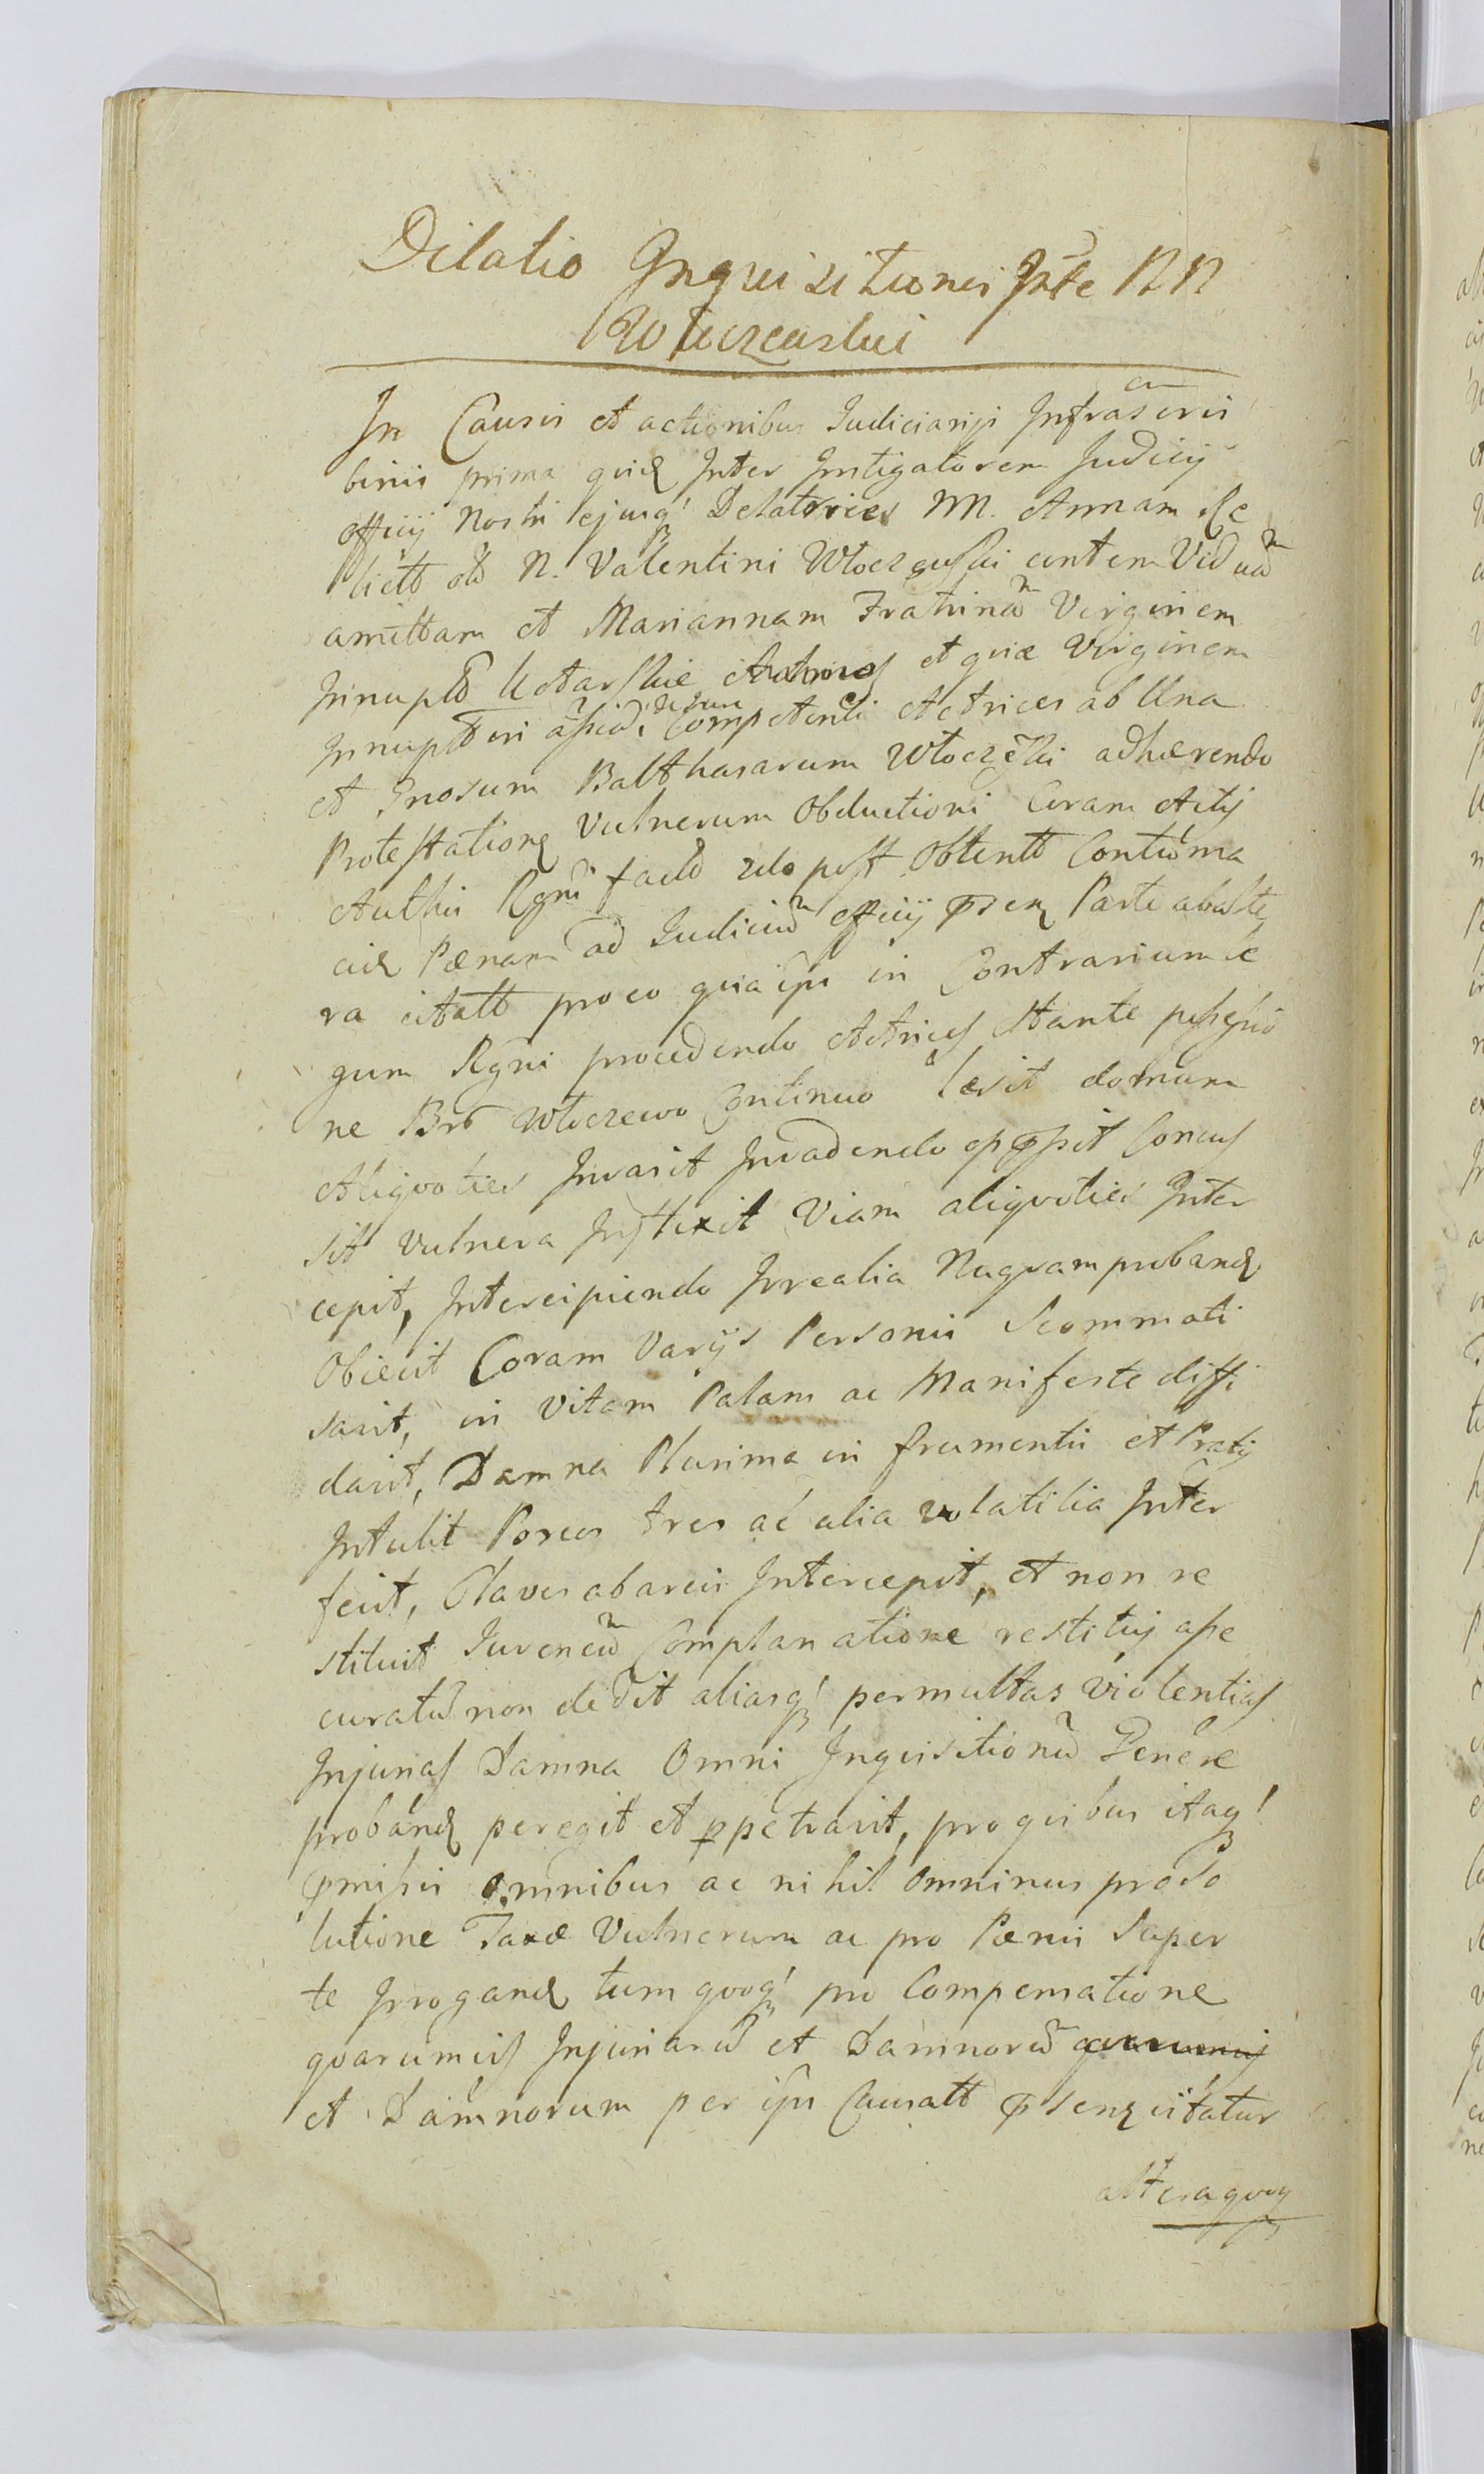 Dilatio Inquisitionis Inte NN
Włoczewskie
In Causis et actionibus Judiciarijs Infrascris
binis prima quid Inter Instigatorem Judicij
officij Nostri ejusq Delatrices NN. Annam Re
lictt olt N. Valentini Włoczewski contem Viduam
amittam et Mariannam Fratrinam Virginem
Innuptt et quæ Virginem
Innuptt in Competenti Actrices ab Una
et Gnosum Balthasarum Włoczewski adhærendo
Protestatione Vulnerum Obductioni Coram Actis
Authen Rgni factt post Obtentt Contuma
ciæ Pænam ad Judicium officij psens Parte ab alte
ra citatt pro eo quia ipse in Contrarium Le
gum Rgni procedendo Actrices Stante possessio
ne Bro Włoczewo Continuo læsit domum
Aliquoties Invasit Invadendo oppssit Concus
sit vulnera Inflixit Viam aliquoties Inter
cepit, Intercipiendo Irrealia Nuqvam proband
Obiecit Coram Varijs Personis Scommati
savit, in Vitam Palam ac Manifeste diffi
davit, Damna Plurima in frumentis et Pratis
Intulit Porcos tres ac alia volatilia Inter
fecit, Claves ab arcis Intercepit, et non re
stituit Juvencum Complanatione restitui asse
curatum non dedit aliasq permultas violentias
Injurias Damna Omni Inquisitionum Genere
proband peregit et ppetravit, pro quibus itaq
pmissis omnibus ac nihil omninus pro so
lutione Taxæ Vulnerum ac pro Pænis super
te Irrogand tum qvoq pro Compensatione
qvarumvis Injuriarum et Damnorum qvarumvis
et Damnorum per ipsu Causatt psens citatur
altera qvoq